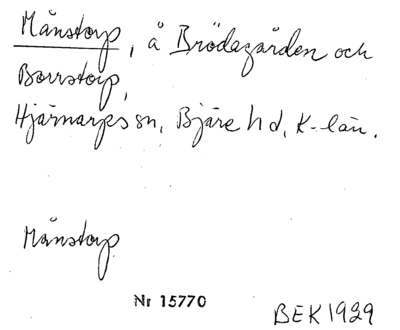 Månstorp, å Brödagården och
Borrstorp,
Hjärnarps sn, Bjäre hd, K-län.
Månstorp
Nr 15770
BEK 1929